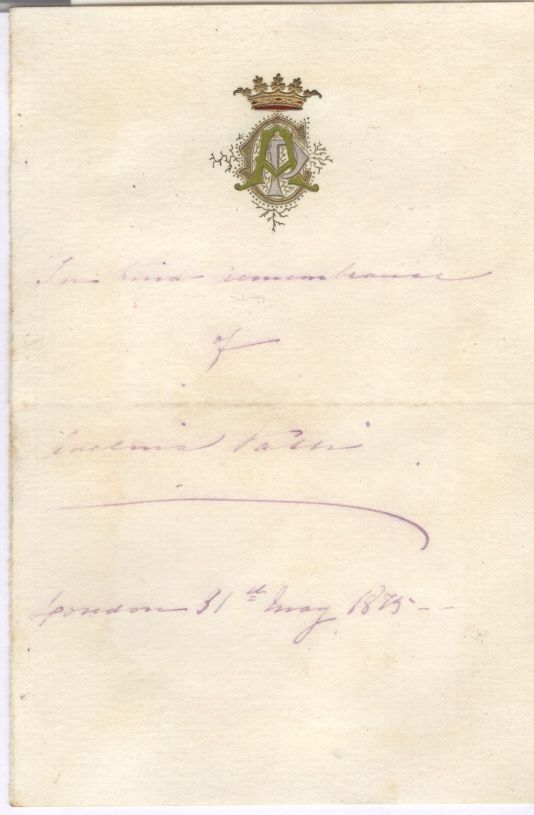 In kind remembrance
of
Adelina Patti
London 31st May 1875 - -